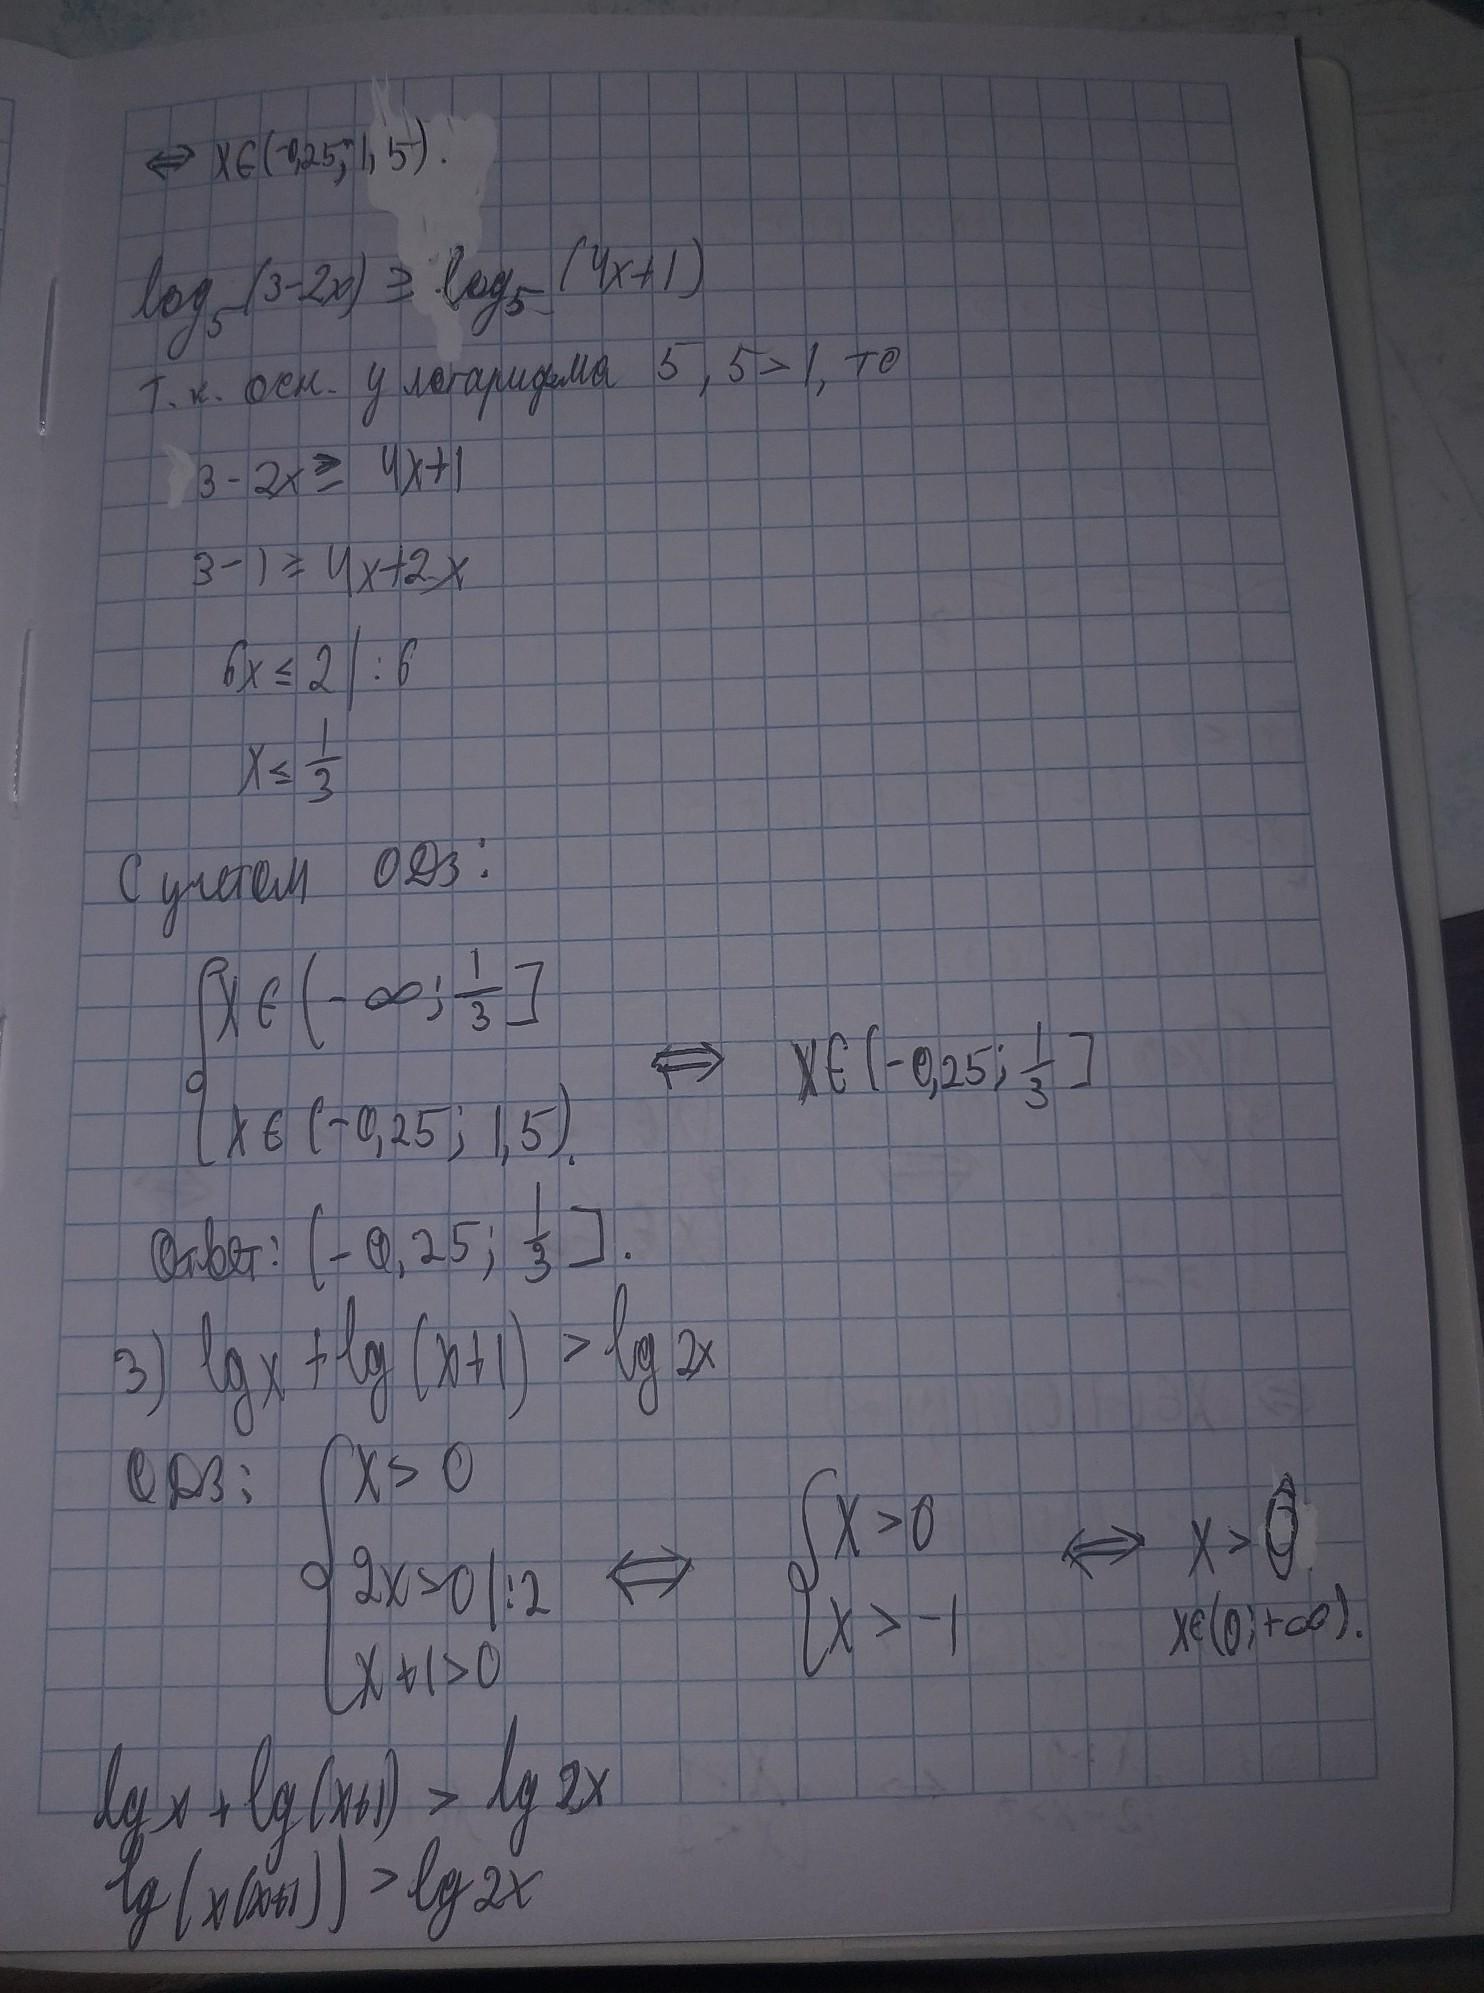 ⇔ x∈(-0,25; 1,5).
log₅(3-2x) ≥ log₅(4x+1)
т.к. осн. у логарифма 5, 5>1, то
3-2x ≥ 4x+1
3-1 ≥ 4x+2x
6x ≤ 2 | :6
x ≤ 1/3
С учетом ОДЗ:
{ x∈(-∞; 1/3]
x∈(-0,25; 1,5). ⇔ x∈(-0,25; 1/3]
Ответ: (-0,25; 1/3].
3) lg x + lg(x+1) > lg 2x
ОДЗ: { x > 0
2x>0 | :2
x+1>0
⇔ { x > 0
x > -1
⇔ x > 0
x∈(0;+∞).
lg x + lg(x+1) > lg 2x
lg(x(x+1)) > lg 2x